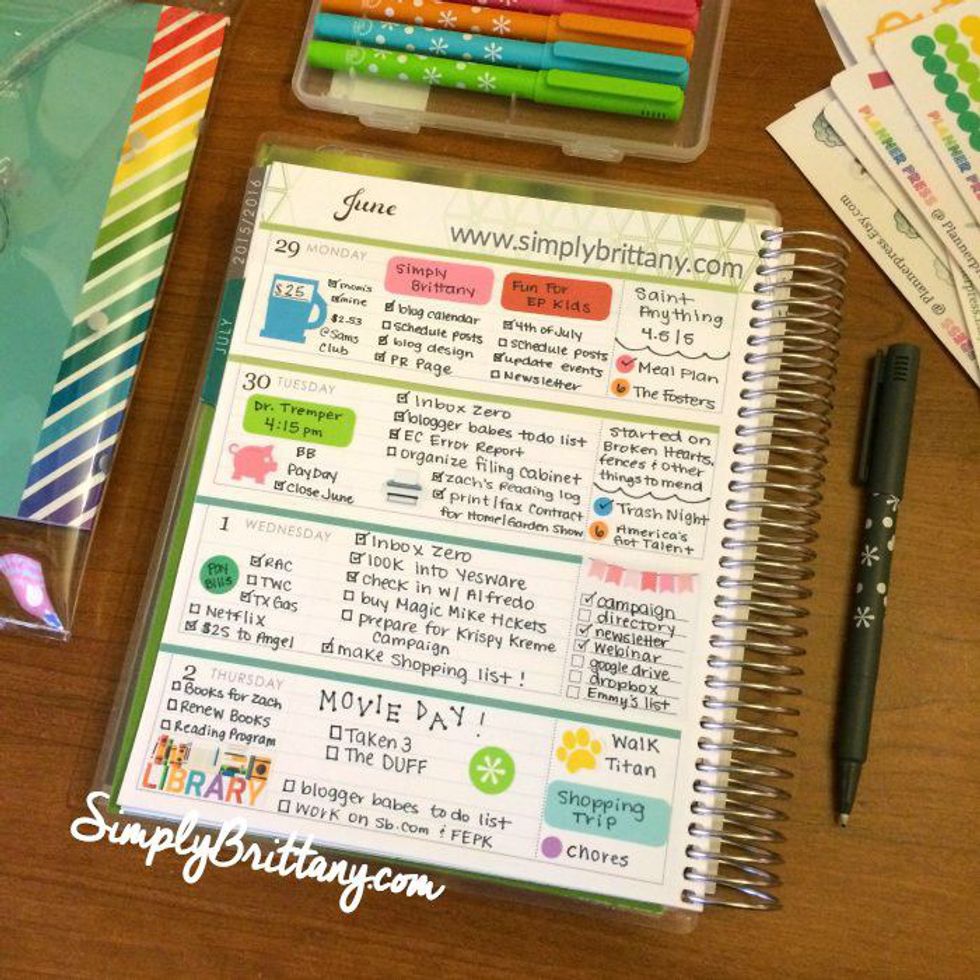 2015/2016
JULY
June
www.simplybrittany.com
29 MONDAY
$25
mom's
mine
$2.53
@Sams
Club
Simply
Brittany
blog calendar
schedule posts
blog design
PR Page
Fun For
EP Kids
4th of July
schedule posts
update events
Newsletter
Saint
Anything
4.5|5
Meal Plan
6 The Fosters
30 TUESDAY
Dr. Tremper
4:15 pm
BB
PayDay
Close June
Inbox Zero
blogger babes to do list
EC Error Report
organize filing Cabinet
zach's Reading log
print|fax Contract
for Home|Garden Show
Started on
Broken Hearts,
fences & other
things to mend
Trash Night
6 America's
Got Talent
1 WEDNESDAY
Pay
Bills
RAC
TWC
TX Gas
Netflix
$25 to Angel
Inbox Zero
look into Yesware
check in w/ Alfredo
buy Magic Mike tickets
prepare for Krispy Kreme
campaign
make Shopping list!
campaign
directory
newsletter
webinar
google drive
dropbox
Emmy's list
2 THURSDAY
Books for zach
Renew Books
Reading Program
LIBRARY
MOVIE DAY!
Taken 3
The DUFF
blogger babes to do list
work on Sb.com & FEPK
Walk
Titan
Shopping
Trip
Chores
PLANNER PRESS
PLANNER PRESS @ Planner
Plannerpress.Etsy.com
SimplyBrittany.com